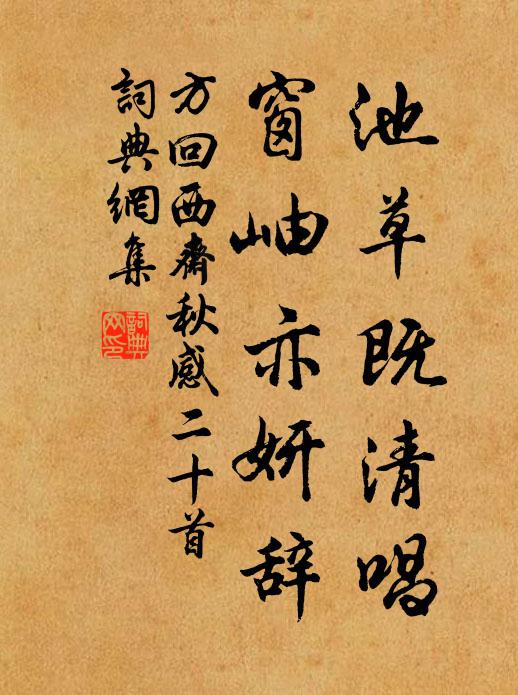 池草既清唱
窗岫亦妍辞
方回西齋秋感二十首
詞典網集
詞典网印